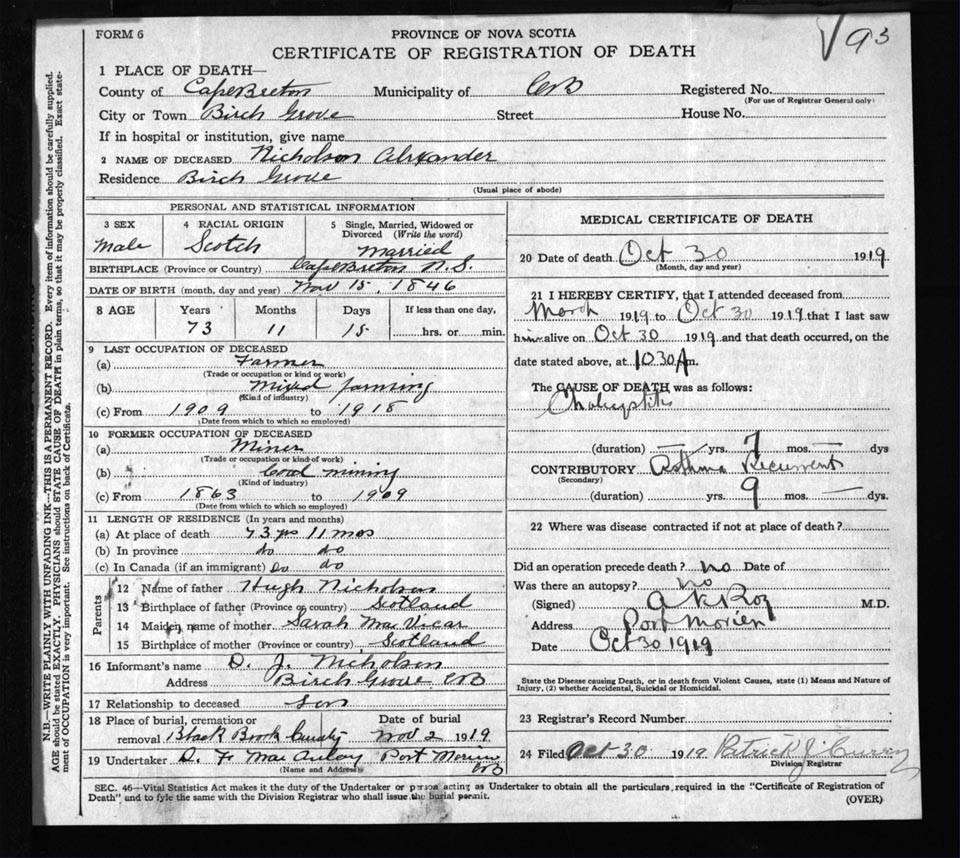 FORM 6
PROVINCE OF NOVA SCOTIA
CERTIFICATE OF REGISTRATION OF DEATH
93
1 PLACE OF DEATH—
County of Cape Breton Municipality of CB Registered No.
(For use of Registrar General only)
City or Town Birch Grove Street House No.
If in hospital or institution, give name
2 NAME OF DECEASED Nicholson Alexander
Residence Birch Grove
(Usual place of abode)
PERSONAL AND STATISTICAL INFORMATION
3 SEX 4 RACIAL ORIGIN 5 Single, Married, Widowed or
Divorced (Write the word)
Male Scotch Married
BIRTHPLACE (Province or Country) Cape Breton N.S.
DATE OF BIRTH (month, day and year) Nov 15, 1846
8 AGE Years Months Days If less than one day,
73 11 15 hrs. or min.
9 LAST OCCUPATION OF DECEASED
(a) Farmer
(Trade or occupation or kind or work)
(b) Mixed farming
(Kind of industry)
(c) From 1909 to 1918
(Date from which to which so employed)
10 FORMER OCCUPATION OF DECEASED
(a) Miner
(Trade or occupation or kind of work)
(b) Coal mining
(Kind of industry)
(c) From 1863 to 1909
(Date from which to which so employed)
11 LENGTH OF RESIDENCE (In years and months)
(a) At place of death 73 yrs 11 mos
(b) In province do do
(c) In Canada (if an immigrant) do do
Parents
12 Name of father Hugh Nicholson
13 Birthplace of father (Province or country) Scotland
14 Maiden name of mother Sarah MacVicar
15 Birthplace of mother (Province or country) Scotland
16 Informant's name D. J. Nicholson
Address Birch Grove CB
17 Relationship to deceased Son
18 Place of burial, cremation or Date of burial
removal Black Brook Nov 2 1919
19 Undertaker D. F. Port Morien
CB
(Name and Address)
MEDICAL CERTIFICATE OF DEATH
20 Date of death Oct 30 1919
(Month, day and year)
21 I HEREBY CERTIFY, that I attended deceased from
March 1919 to Oct 30 1919 that I last saw
him alive on Oct 30 1919 and that death occurred, on the
date stated above, at 1030 A m.
The CAUSE OF DEATH was as follows:
(duration) — yrs. 7 mos. — dys
CONTRIBUTORY Asthma Recurrent
(Secondary)
(duration) yrs. 9 mos. — dys.
22 Where was disease contracted if not at place of death?
Did an operation precede death? no Date of
Was there an autopsy? no
(Signed) A K Roy M.D.
Address Port Morien
Date Oct 30 1919
State the Disease causing Death, or in death from Violent Causes, state (1) Means and Nature of
Injury, (2) whether Accidental, Suicidal or Homicidal.
23 Registrar's Record Number
24 Filed Oct 30 1919 Patrick J. Curry
Division Registrar
SEC. 46—Vital Statistics Act makes it the duty of the Undertaker or person acting as Undertaker to obtain all the particulars required in the "Certificate of Registration of
Death" and to fyle the same with the Division Registrar who shall issue the burial permit.
(OVER)
N.B.—WRITE PLAINLY WITH UNFADING INK—THIS IS A PERMANENT RECORD. Every item of information should be carefully supplied.
AGE should be stated EXACTLY. PHYSICIANS should STATE CAUSE OF DEATH in plain terms, so that it may be properly classified. Exact state-
ment of OCCUPATION is very important. See instructions on back of Certificate.